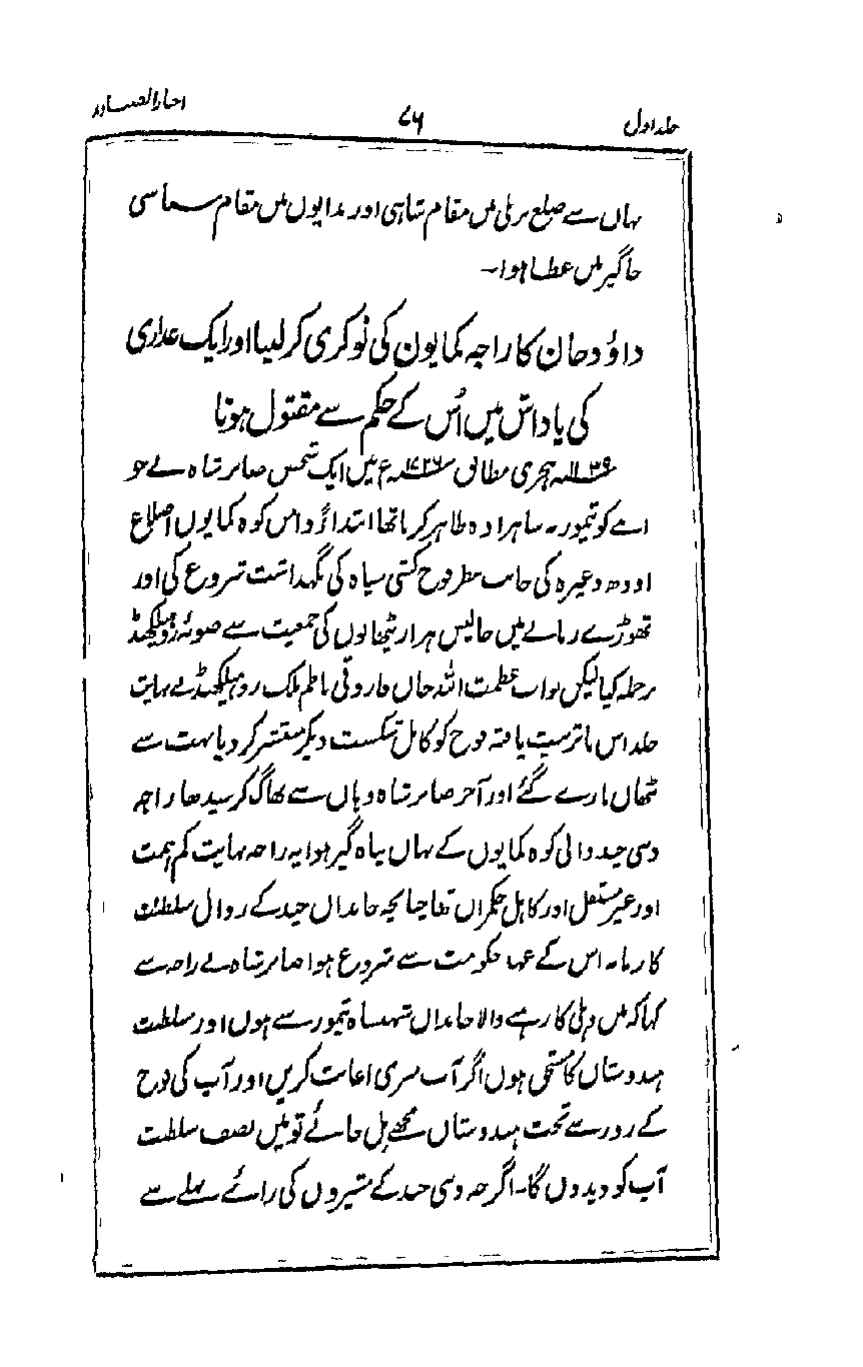 جلد اول ۷۶ اخبار الصنادید
یہاں سے ضلع بریلی میں مقام شاہی اور بدایوں میں مقام سہاسی
جاگیر میں عطا ہوا۔
داؤد خان کا راجہ کمایون کی نوکری کر لینا اور ایک غداری
کی پاداش میں اُس کے حکم سے مقتول ہونا
۱۱۳۹ ہجری مطابق ۱۷۲۶ع میں ایک شخص صابر شاہ نے جو
اپنے کو تیموریہ شاہزادہ ظاہر کرتا تھا ابتداءً دامن کوہ کمایوں اضلاع
اودھ وغیرہ کی جانب بطور فوج کشی سپاہ کی نگہداشت شروع کی اور
تھوڑے زمانے میں چالیس ہزار پٹھانوں کی جمعیت سے صوبۂ روہیلکھنڈ
پر حملہ کیا لیکن نواب عظمت اللہ خاں فاروقی ناظم ملک روہیلکھنڈ نے نہایت
جلد اس ناتربیت یافتہ فوج کو کامل شکست دیکر منتشر کر دیا بہت سے
پٹھان مارے گئے اور آخر صابر شاہ وہاں سے بھاگ کر سیدھا راجہ
دیبی چند والی کوہ کمایوں کے یہاں پناہ گیر ہوا یہ راجہ نہایت کم ہمت
اور غیر مستقل اور کاہل حکمراں تھا چنانچہ خاندان چند کے زوال سلطنت
کا زمانہ اس کے عہد حکومت سے شروع ہوا صابر شاہ نے راجہ سے
کہا کہ میں دہلی کا رہنے والا خاندان شہنشاہ تیمور سے ہوں اور سلطنت
ہندوستاں کا مستحق ہوں اگر آپ میری اعانت کریں اور آپ کی فوج
کے زور سے تخت ہندوستاں مجھے مل جائے تو میں نصف سلطنت
آپ کو دیدوں گا۔ اگرچہ دیبی چند کے مشیروں کی رائے پہلے سے